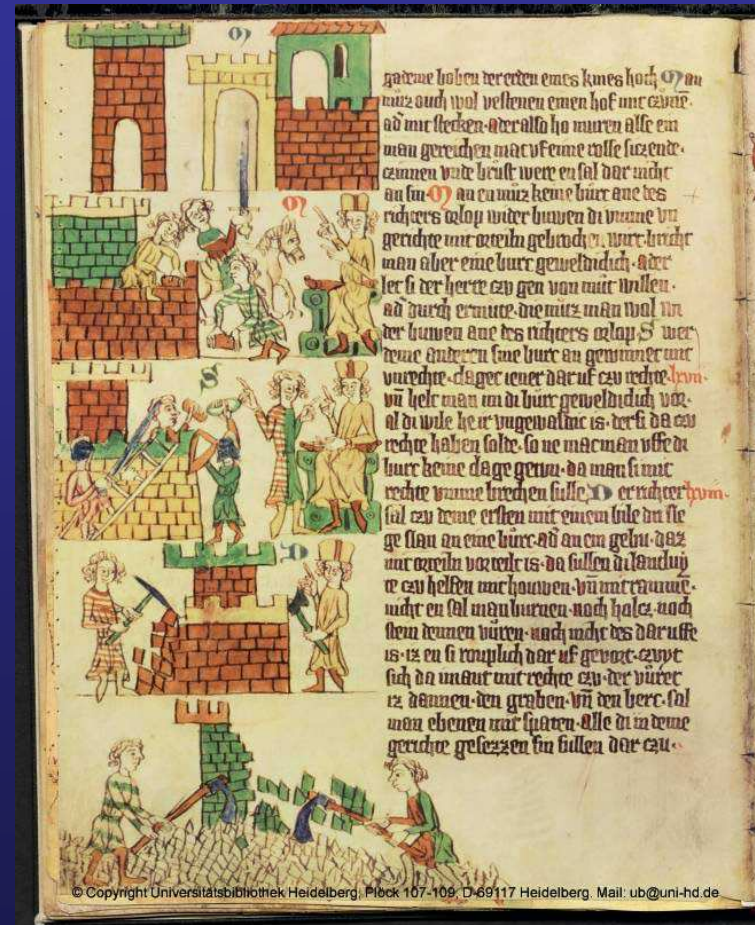 gademe boben der erden eines knies hoch Man
muz ouch wol vestenen einen hof mit czune
ad' mit stecken · ader also ho muren alse ein
man gereichen mac uf eime rosse siczende ·
czinnen unde brust were en sal dar nicht
an sin · Man en muz keine burc ane des
richters orlop wider buwen di umme un
gerichte mit orteiln gebrochen wirt · bricht
man aber eine burc geweldiclich · ader
let si der herre czu gen von mut willen ·
ad' durch ermute · die muz man wol wi
der buwen ane des richters orlop · S wer
deme anderen sine burc an gewinnet mit
unrechte · claget iener dar uf czu rechte · lxvii ·
un helt man im di burc geweldiclich vor ·
al di wile he ir ungewaldic is · der si da czu
rechte haben solde · so ne mac man uffe di
burc keine clage getun · da man si mit
rechte umme brechen sulle D er richter lxviii ·
sal czu deme ersten mit eime bile dri sle
ge slan an eine burc · ad' an ein gebu · daz
mit orteiln vorteilt is · da sullen di lantluy
te czu helfen mit houwen · un mit rammē ·
nicht en sal man burnen · noch holcz noch
stein dennen vuren · noch nicht des dar uffe
is · iz en si rouplich dar uf gevort · czuyt
sich da imant mit rechte czu · der vuret
iz dannen · den graben · un den berc · sal
man ebenen mit spaten · alle di in deme
gerichte gesezzen sin sullen dar czu ·
M
M
S
D
© Copyright Universitätsbibliothek Heidelberg, Plöck 107-109, D-69117 Heidelberg. Mail: ub@uni-hd.de